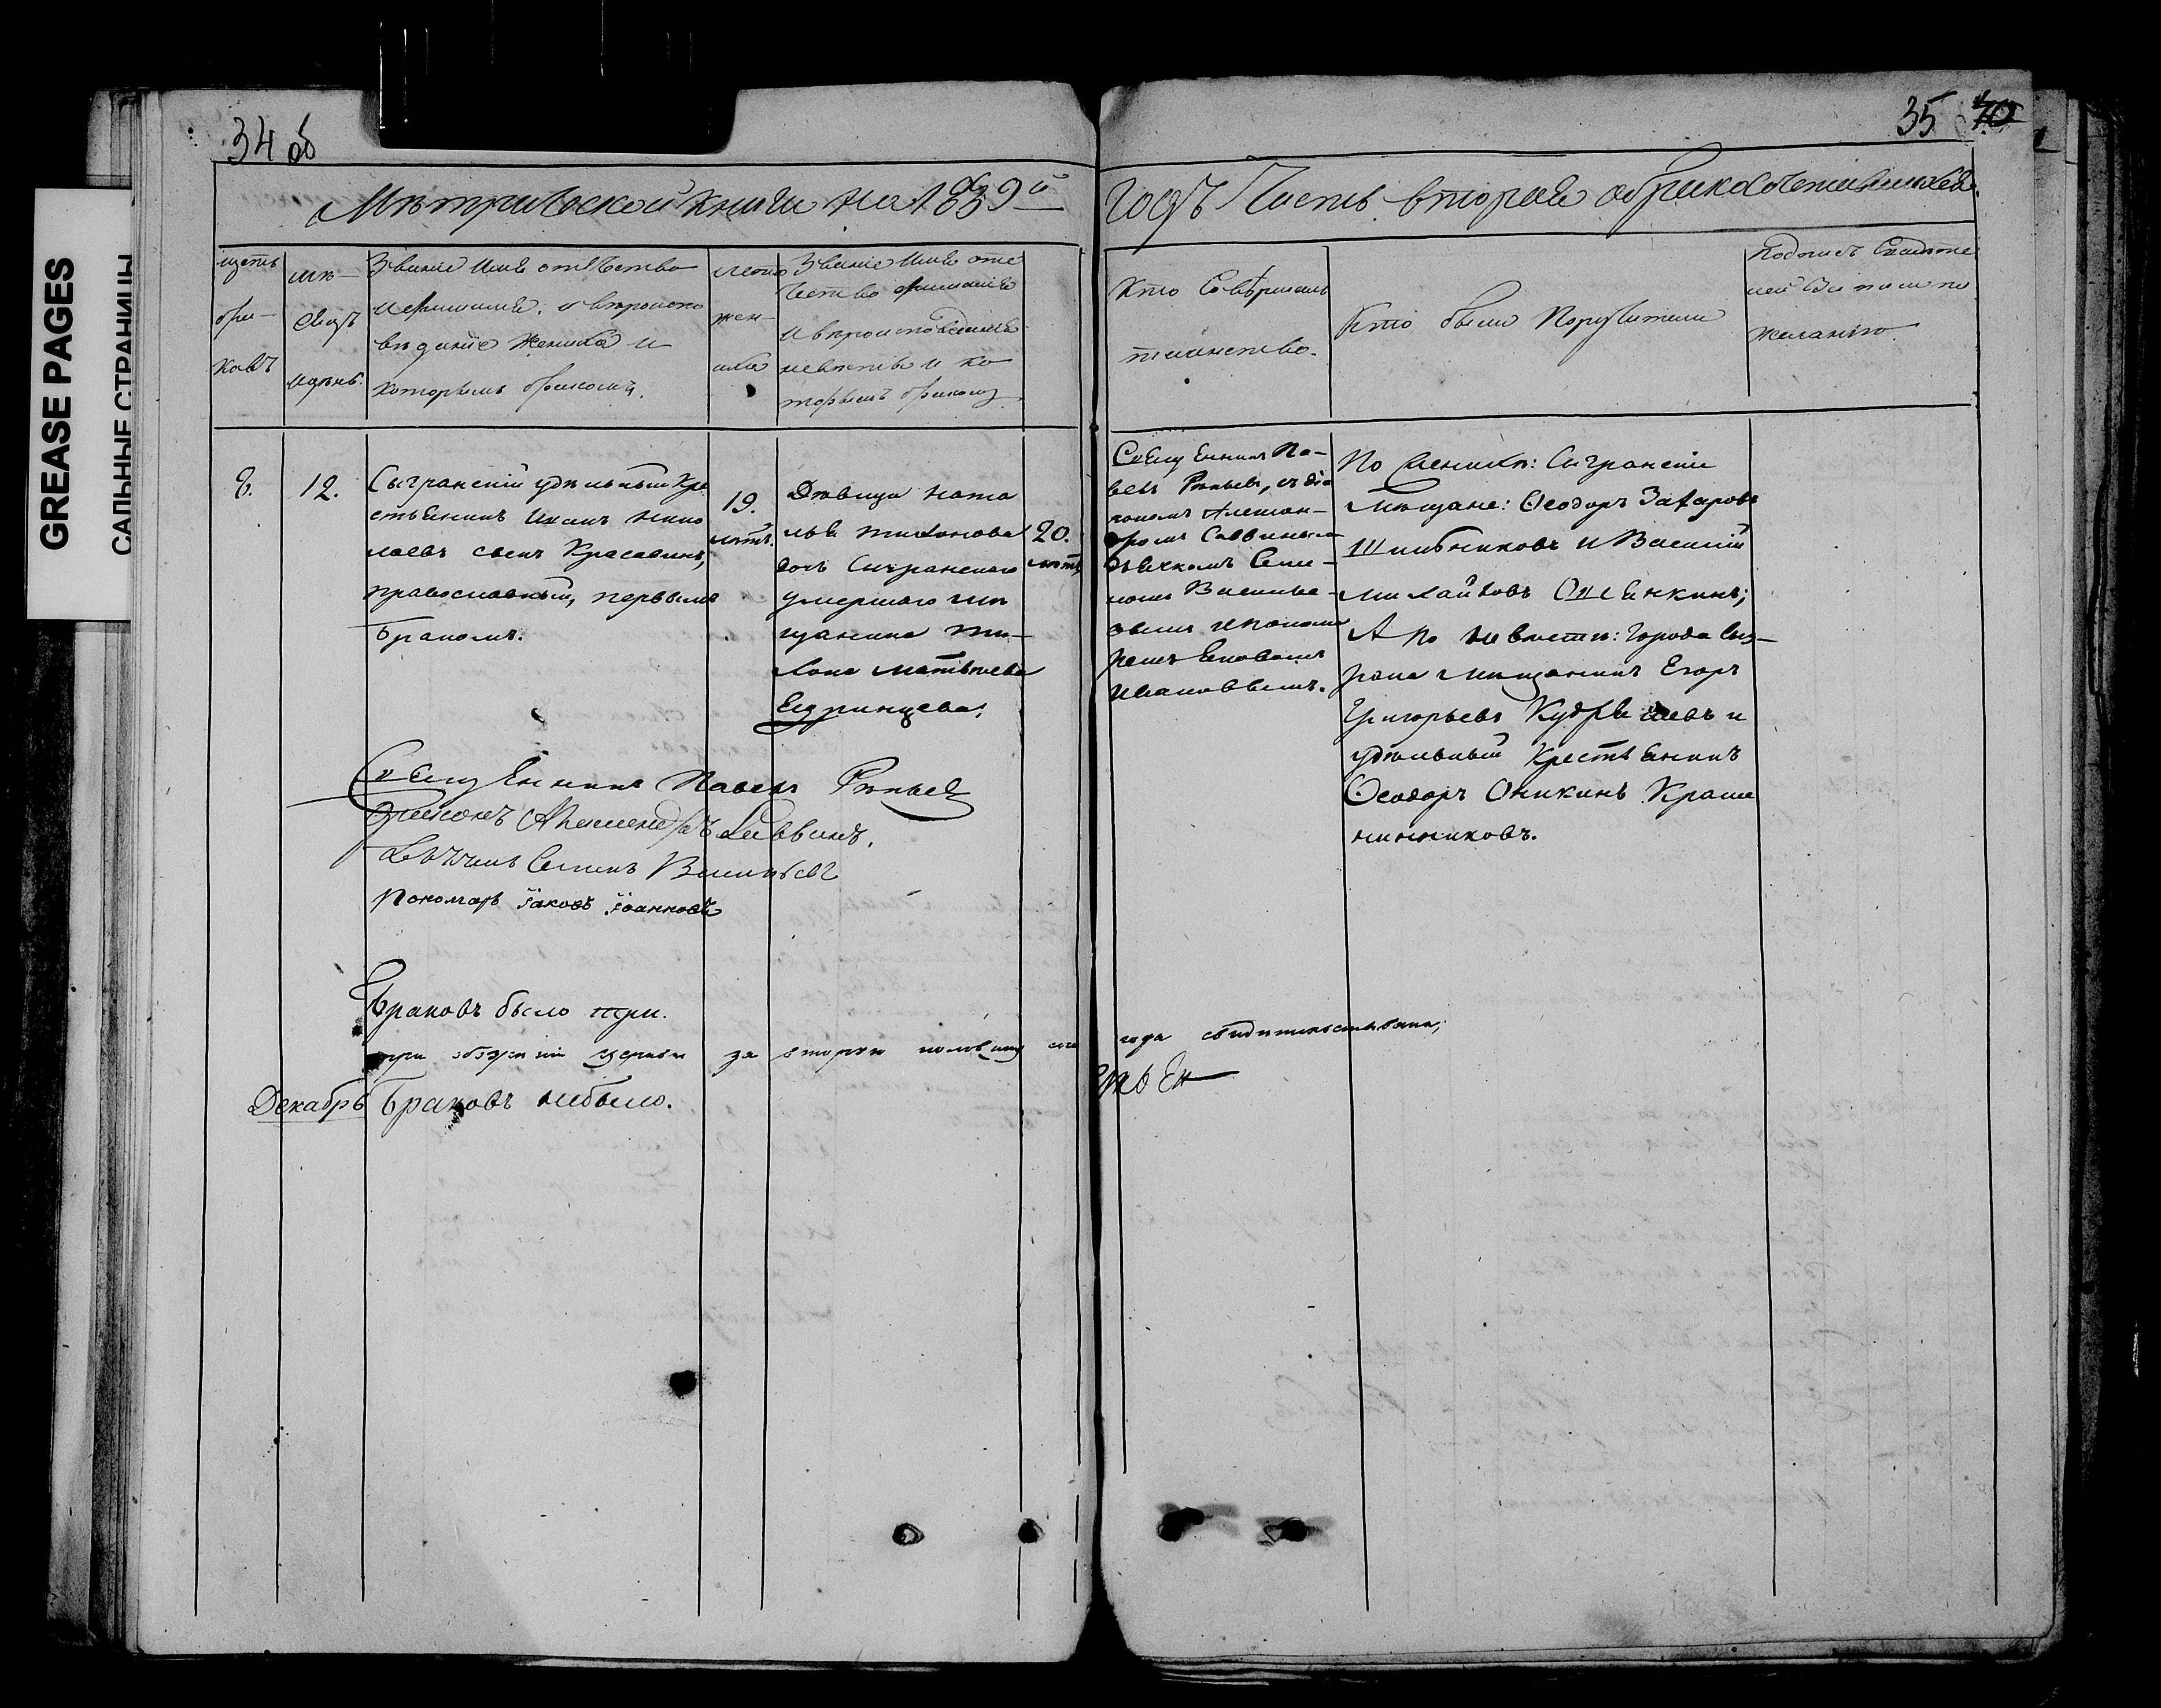 GREASE PAGES
САЛЬНЫЕ СТРАНИЦЫ
34 об
35 70
Метрической книги на 1839й
годъ Часть вторая о бракосочетавшихся.
щетъ
бра-
ковъ
мѣ-
сяцъ
и день.
Званіе Имя отечество
и фамилія, и вѣроиспо
вѣданіе жениха и
которымъ бракомъ.
лета
жен-
иха
Званіе Имя оте
чество фамилія
и вѣроисповѣданіе
невѣсты и ко
торымъ бракомъ
Кто Совѣршалъ
таинство.
Кто были Поручители
Подпись Свидѣте
лей Записи по
желанію.
12.
Сызранскій удѣльный Кре
стьянинъ Иванъ Нико
лаевъ сынъ Красавинъ,
православный, первымъ
бракомъ.
19.
лѣтъ.
Дѣвица Ната
лья Тихонова
дочь Сызранскаго
умершаго мѣ
щанина Ти-
хона Матвѣева
Ядринцева.
20.
лѣтъ
Священникъ Па-
велъ Рѣпьевъ, съ діа
кономъ Алексан-
дромъ Саввинымъ
дьячкомъ Семе-
номъ Василье-
вымъ и понома
ремъ Яковомъ
Ивановымъ.
По Женихѣ: Сызранскіе
Мѣщане: Ѳеодоръ Захаровъ
Шишкниковъ и Василій
Михайловъ
А по невѣстѣ: города Сыз-
рана мѣщанинъ Егоръ
Григорьевъ Кудряшевъ и
удѣльный Крестьянинъ
Ѳеодоръ Оникинъ Краше
нинниковъ.
Священникъ Павелъ Рѣпьевъ
Діаконъ Александръ Саввинъ.
Дьячекъ Семенъ Васильевъ
Пономарь Іаковъ Іоанновъ
Браковъ было три.
при обозреніи церкви за вторую половину сего года свидѣтельствовалъ,
Декабрь Браковъ небыло.